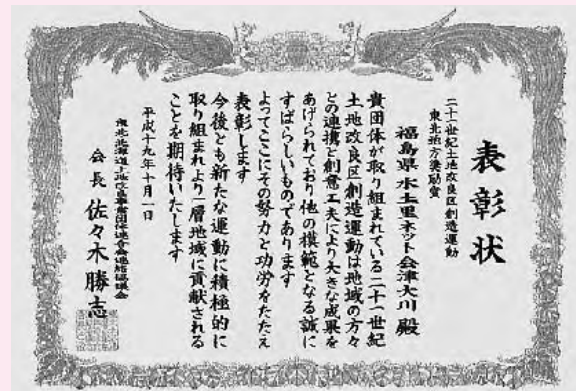 表彰状
二十一世紀土地改良区創造運動
東北地方奨励賞
福島県水土里ネット会津大川殿
貴団体が取り組まれている二十一世紀
土地改良区創造運動は地域の方々
との連携と創意工夫により大きな成果を
あげられており他の模範となる誠に
すばらしいものであります
よってここにその努力と功労をたたえ
表彰します
今後とも新たな運動に積極的に
取り組まれより一層地域に貢献される
ことを期待いたします
平成十九年十月一日
東北北海道土地改良事業団体連合会連絡協議会
会長 佐々木勝志